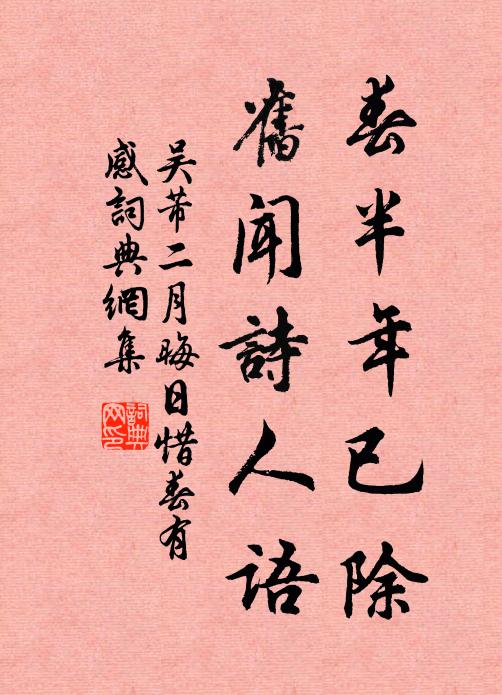 春半年已除
舊闻詩人语
吴芾二月晦日惜春有
感詞典網集
詞典
网印